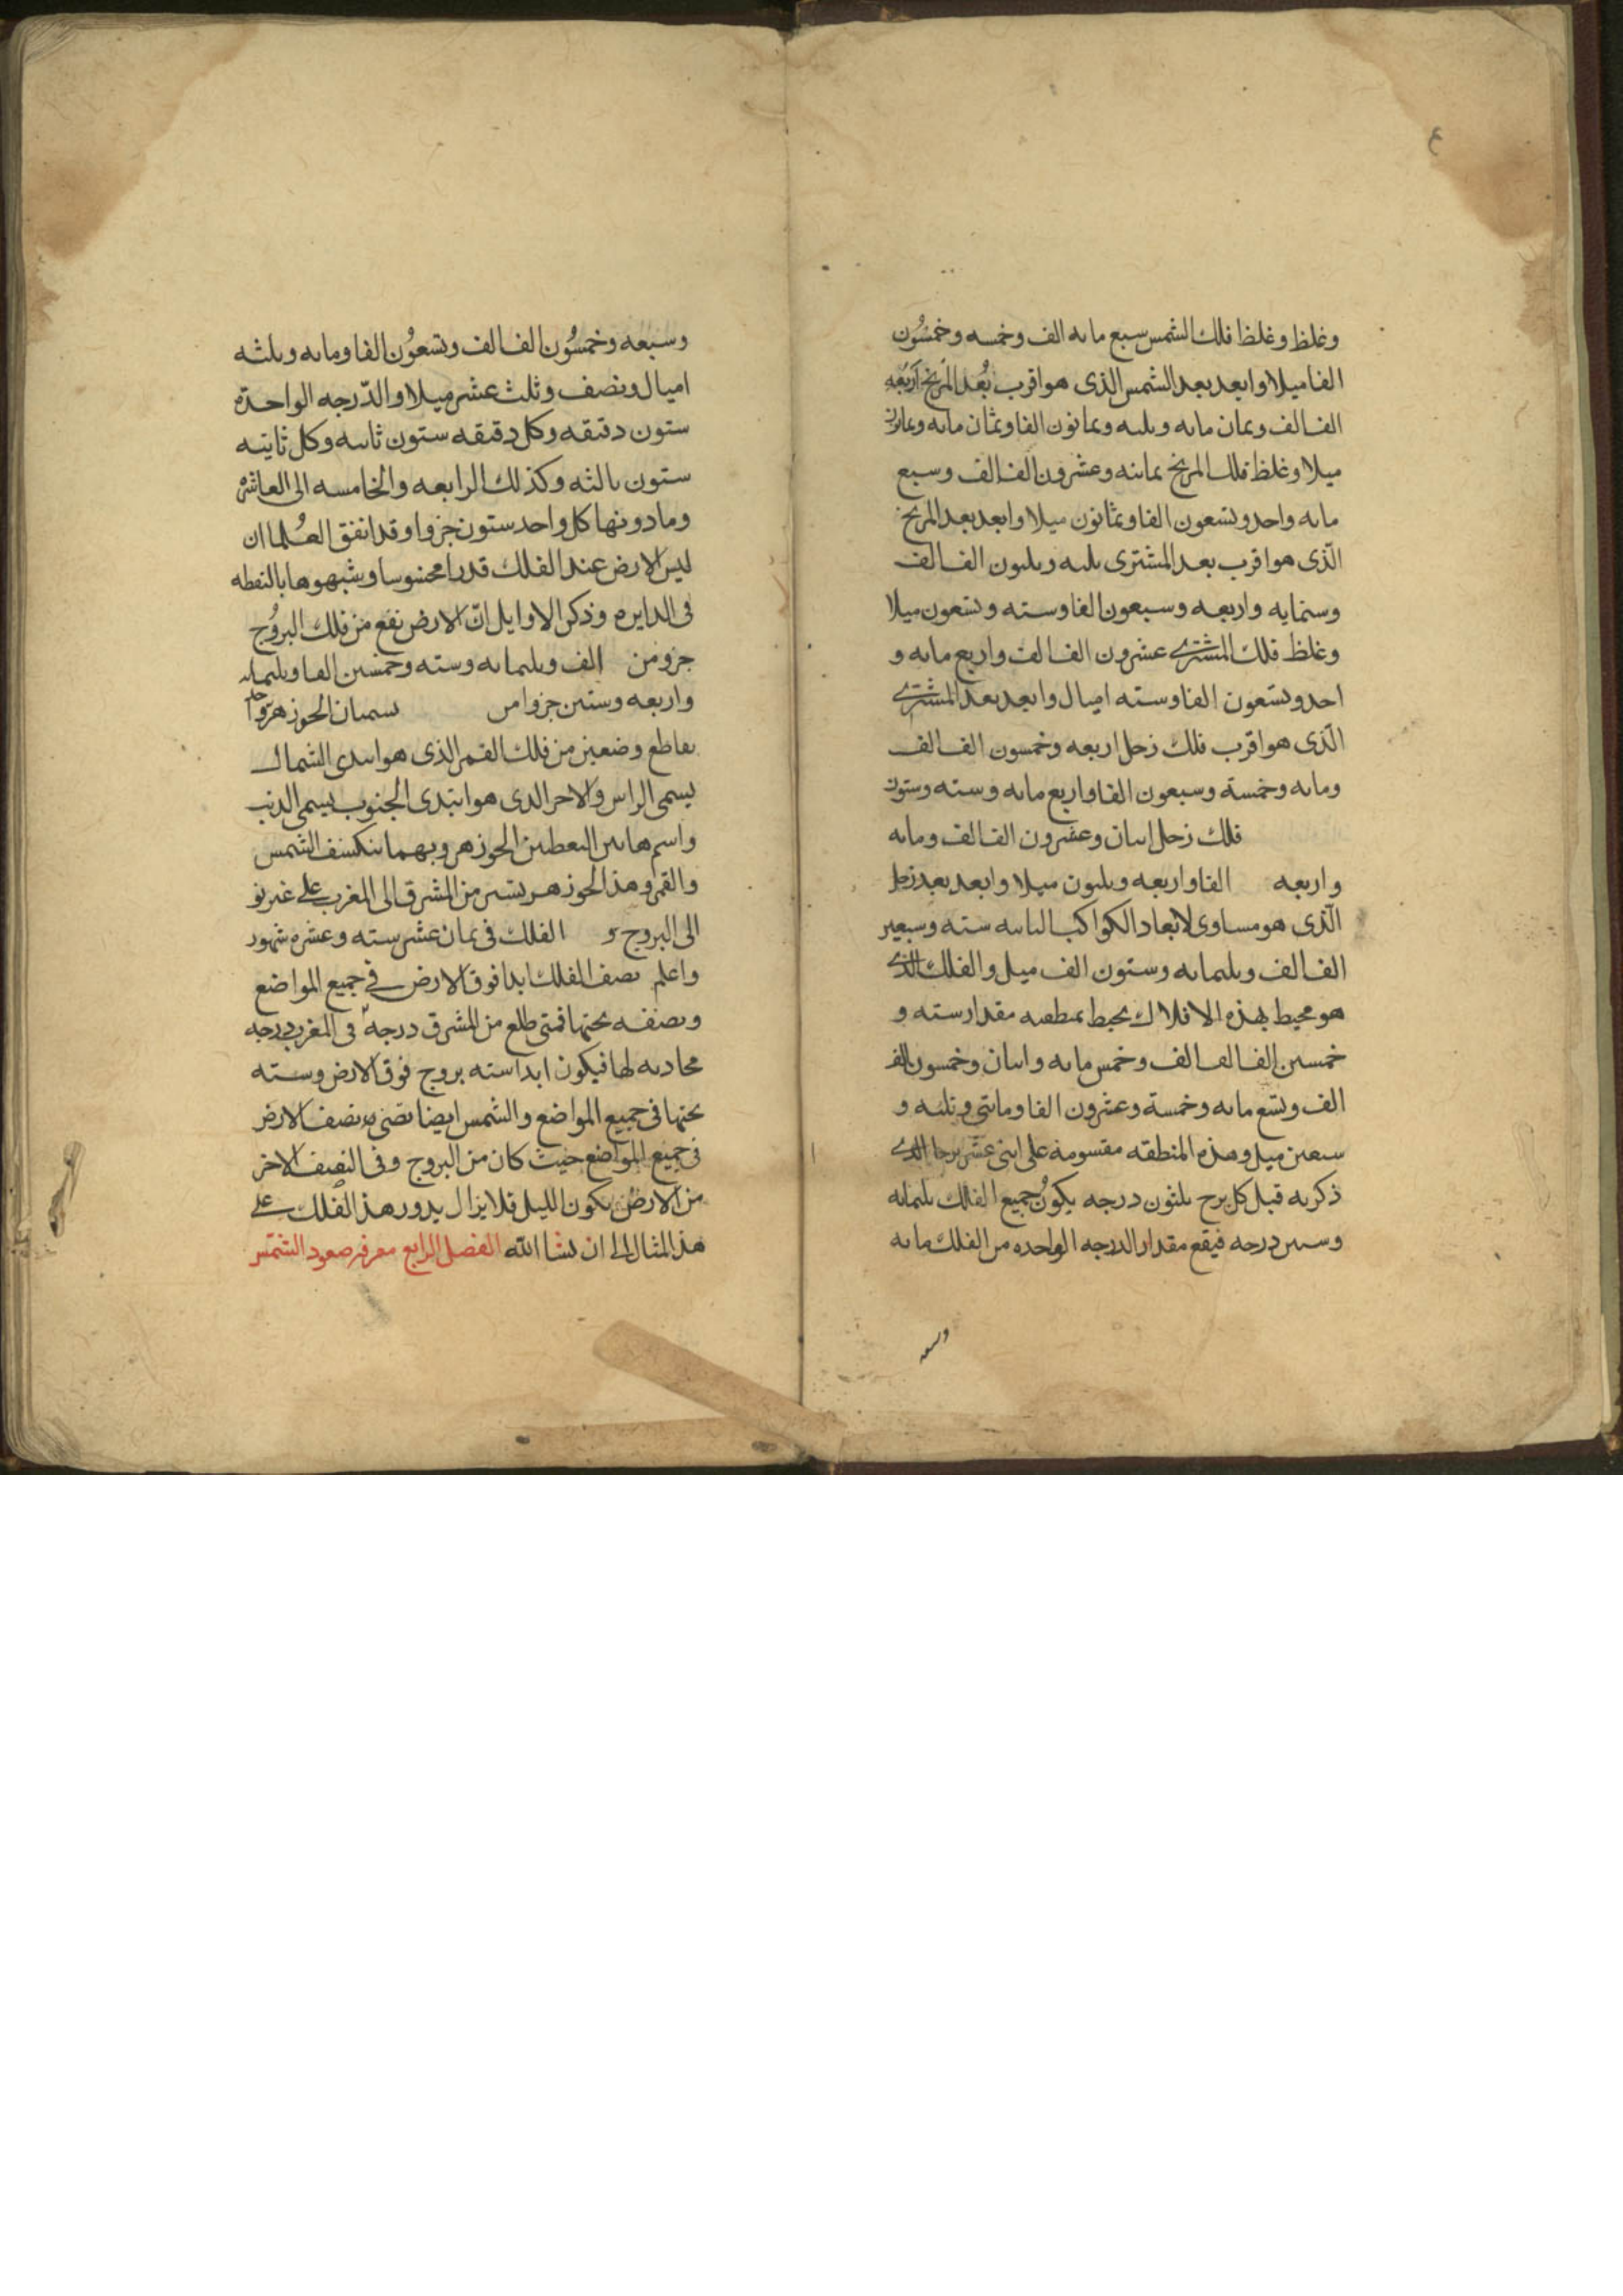 ع
وغلظ وغلظ فلك الشمس سبع مايه الف وخمسه وخمسُون
الفا ميلا وابعد بعد الشمس الذى هو اقرب بُعد المريخ اربَعه
الف الف وثمان مايه وثلثه وثمانون الفا وثمان مايه وثمانون
ميلا وغلظ فلك المريخ ثمانيه وعشرون الف الف وسبع
مايه واحد وتسعون الفا وثمانون ميلا وابعد بعد المريخ
الّذى هو اقرب بعد المشترى ثلثه وثلثون الف الف
وستمايه واربعه وسبعون الفا وسته وتسعون ميلا
وغلظ فلك المشترى عشرون الف الف واربع مايه و
احد وتسعون الفا وسته اميال وابعد بعد المشترى
الّذى هو اقرب فلك زحل اربعه وخمسون الف الف
ومايه وخمسة وسبعون الفا واربع مايه وسته وستون
فلك زحل اثنان وعشرون الف الف ومايه
واربعه الفا واربعه وثلثون ميلا وابعد بعد زحل
الّذى هو مساوى لابعاد الكواكب الثابته سته وسبعين
الف الف وثلثمايه وستون الف ميل والفلك الذى
هو محيط بهذه الافلاك يحيط بمنطقه مقدار سته و
خمسين الف الف الف وخمس مايه واثنان وخمسون الف
الف وتسع مايه وخمسة وعشرون الفا ومايتى وثلثه و
سبعين ميل وهذه المنطقه مقسومة على اثنى عشر برجا الذى
ذكر به قبل كل برج ثلثون درجه يكونُ جميع الفلك ثلثمايه
وستين درجه فيقع مقدار الدرجه الواحده من الفلك مايه
وسبعه
وسبعه وخمسُون الف الف وتسعُون الفا ومايه وثلثه
اميال ونصف وثلث عشر ميلا والدّرجه الواحدة
ستون دقيقه وكل دقيقه ستون ثانيه وكل ثانيه
ستون ثالثه وكذلك الرابعه والخامسه الى العاشره
وما دونها كل واحد ستون جزوا وقد اتفق العُلما ان
ليس الارض عند الفلك قدرا محسوسا وشبهوها بالنقطه
فى الدايره وذكر الاوايل انّ الارض تقع من فلك البروُج
جزو من الف وثلثمايه وسته وخمسين الفا وثلثمايه
واربعه وستين جزوا من يسميان الجوزهر
تقاطع وضعين من فلك القمر الذى هو ابتدى الشمال
يسمى الراس والاخر الذى هو ابتدى الجنوب يسمى الذنب
واسم هاتين النقطتين الجوزهر وبهما تنكسف الشمس
والقمر وهذا الجوزهر يسير من المشرق الى المغرب على غير تو
الى البروج و الفلك فى ثمان عشر سنه وعشره شهور
واعلم نصف الفلك ابدا فوق الارض فى جميع المواضع
ونصفه تحتها فمتى طلع من المشرق درجة فى المغرب درجه
محاذيه لها فيكون ابدا سته بروج فوق الارض وسته
تحتها فى جميع المواضع والشمس ايضا تضى نصف الارض
فى جميع المواضع حيث كان من البروج وفى النصف الاخر
من الارض يكون الليل فلا يزال يدور هذ الفلك على
هذ المثال الى ان يشا الله الفصل الرابع معرفه صعود الشمس